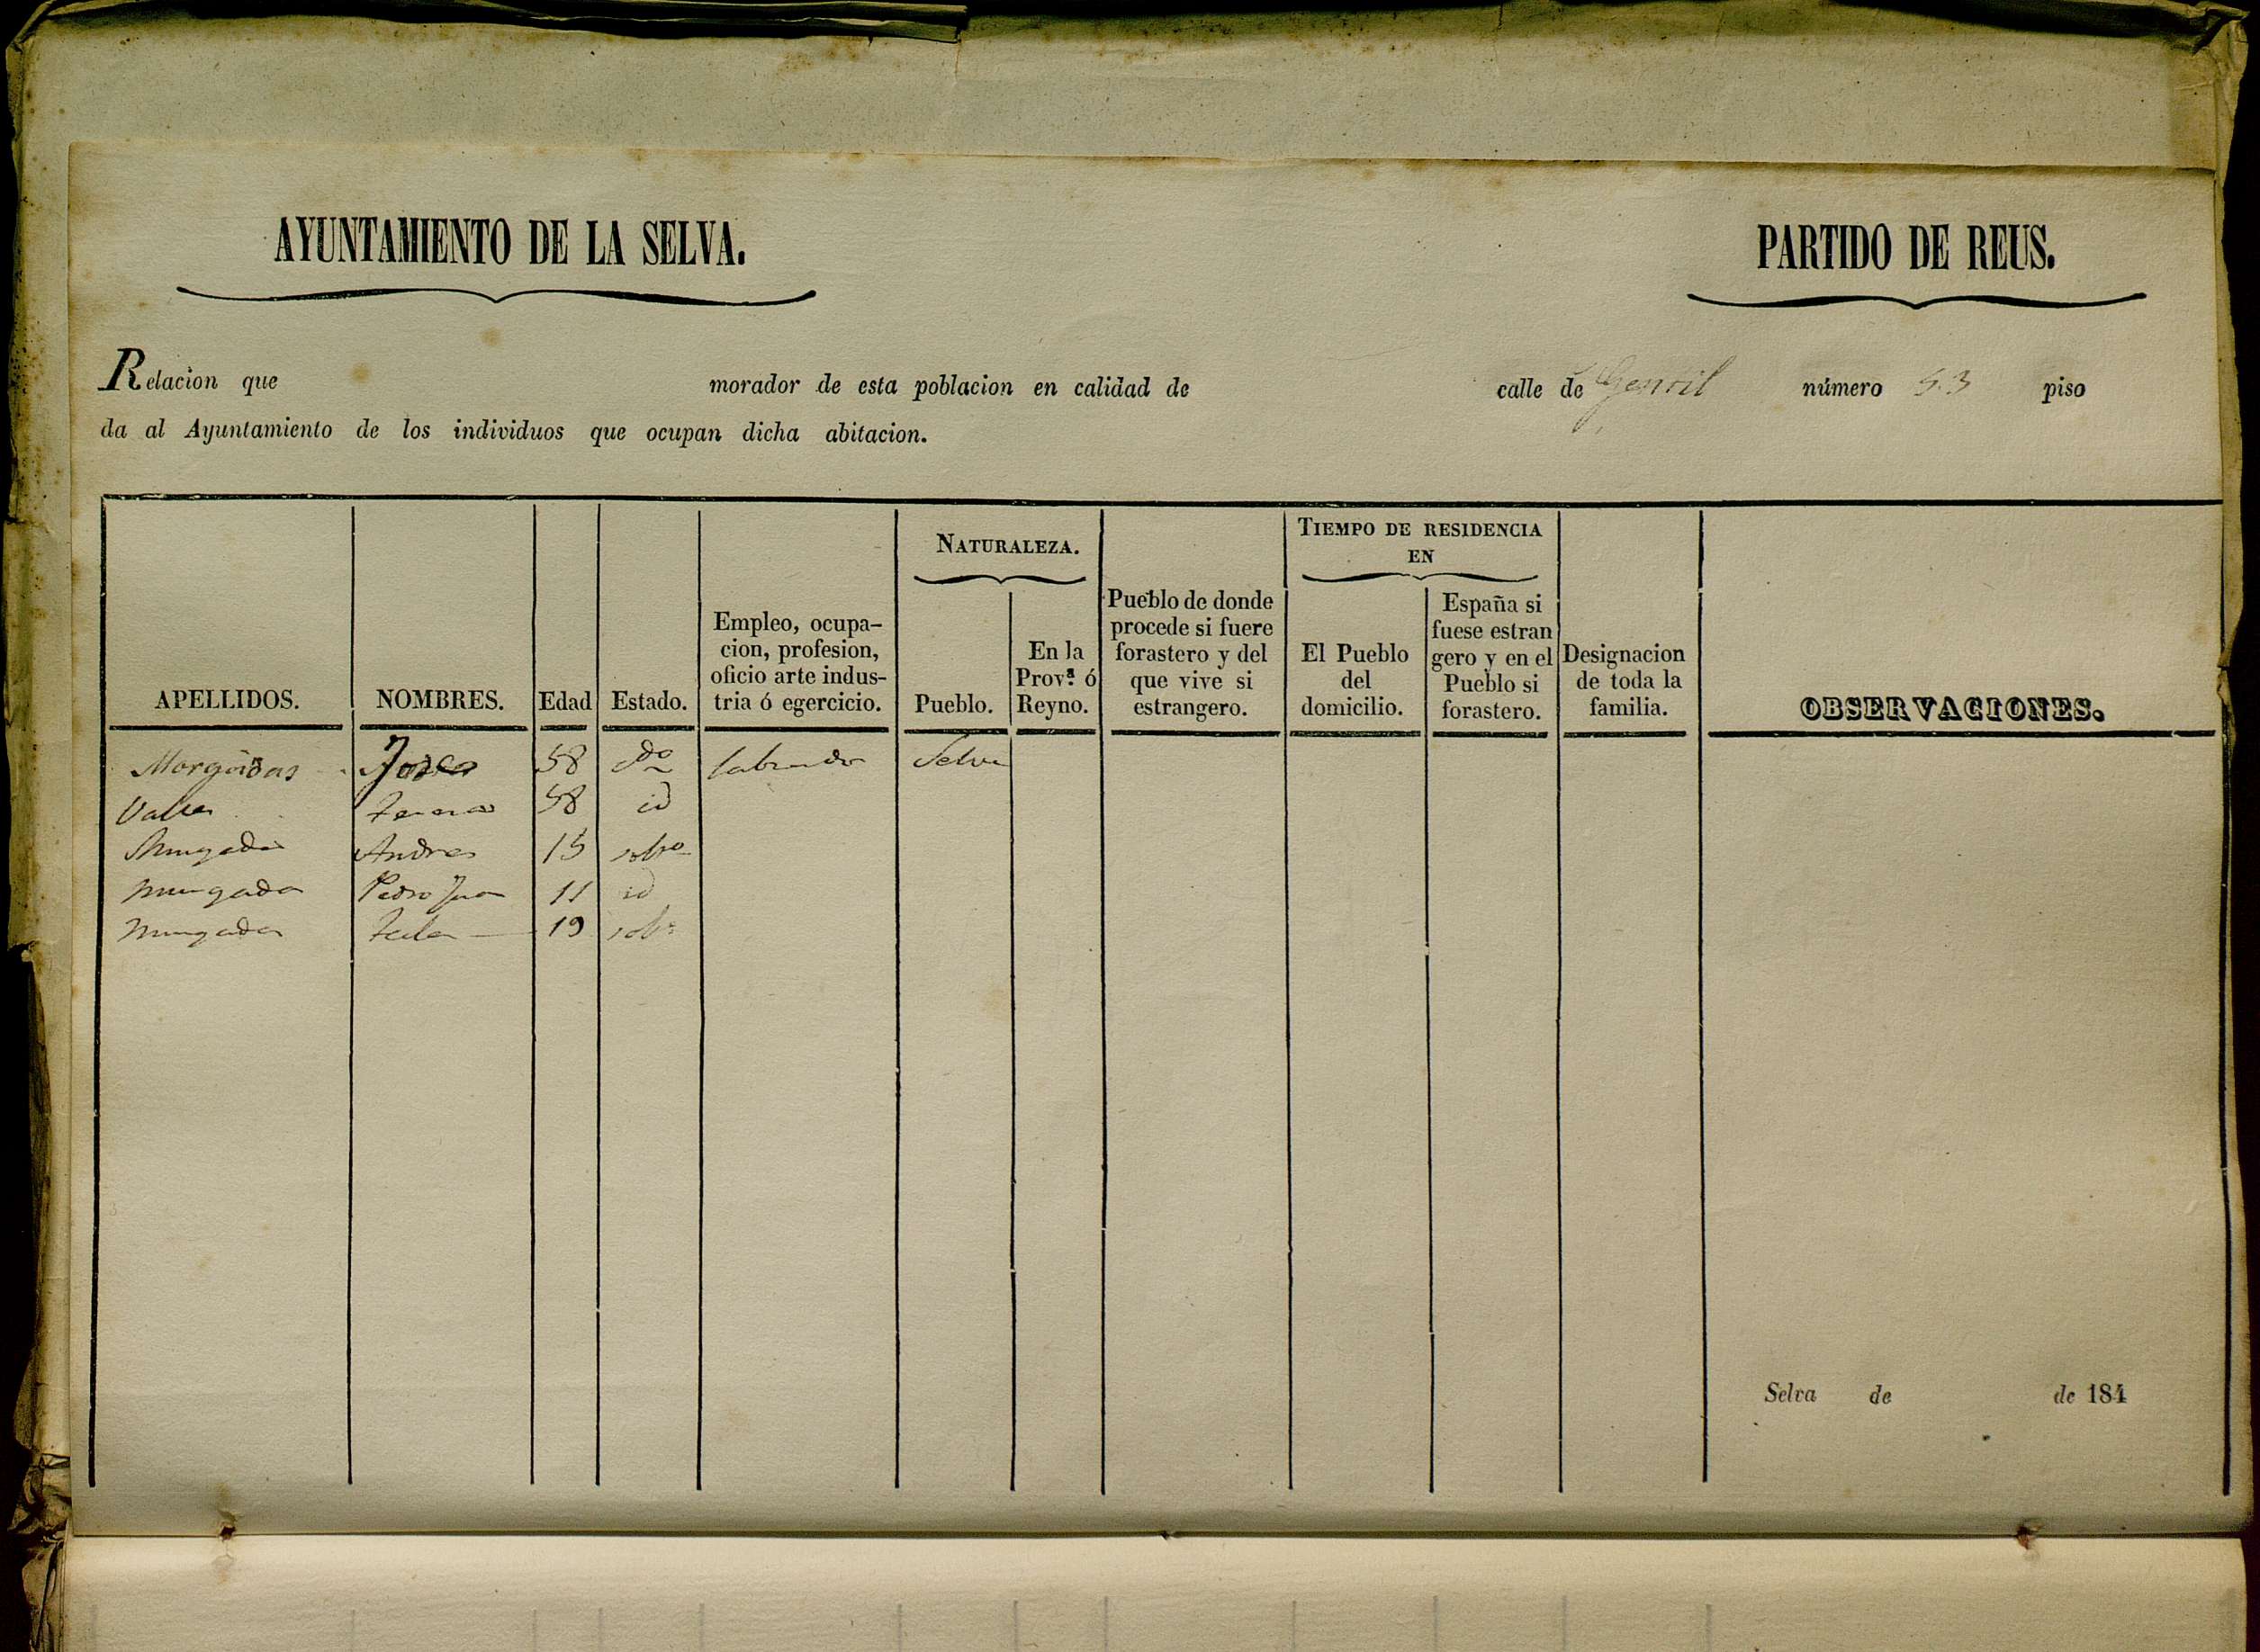 AYUNTAMIENTO DE LA SELVA.
PARTIDO DE REUS.
Relacion que morador de esta poblacion en calidad de calle de número 53 piso
da al Ayuntamiento de los individuos que ocupan dicha abitacion.
NATURALEZA.
TIEMPO DE RESIDENCIA
EN
APELLIDOS.
NOMBRES.
Edad
Estado.
Empleo, ocupa-
cion, profesion,
oficio arte indus-
tria ó egercicio.
Pueblo.
En la
Prov.ª ó
Reyno.
Pueblo de donde
procede si fuere
forastero y del
que vive si
estrangero.
El Pueblo
del
domicilio.
España si
fuese estran
gero y en el
Pueblo si
forastero.
Designacion
de toda la
familia.
OBSERVACIONES.
58 labrador Selva
58 id
Andres 15
Pedro Juan 11 id
19
Selva de de 184